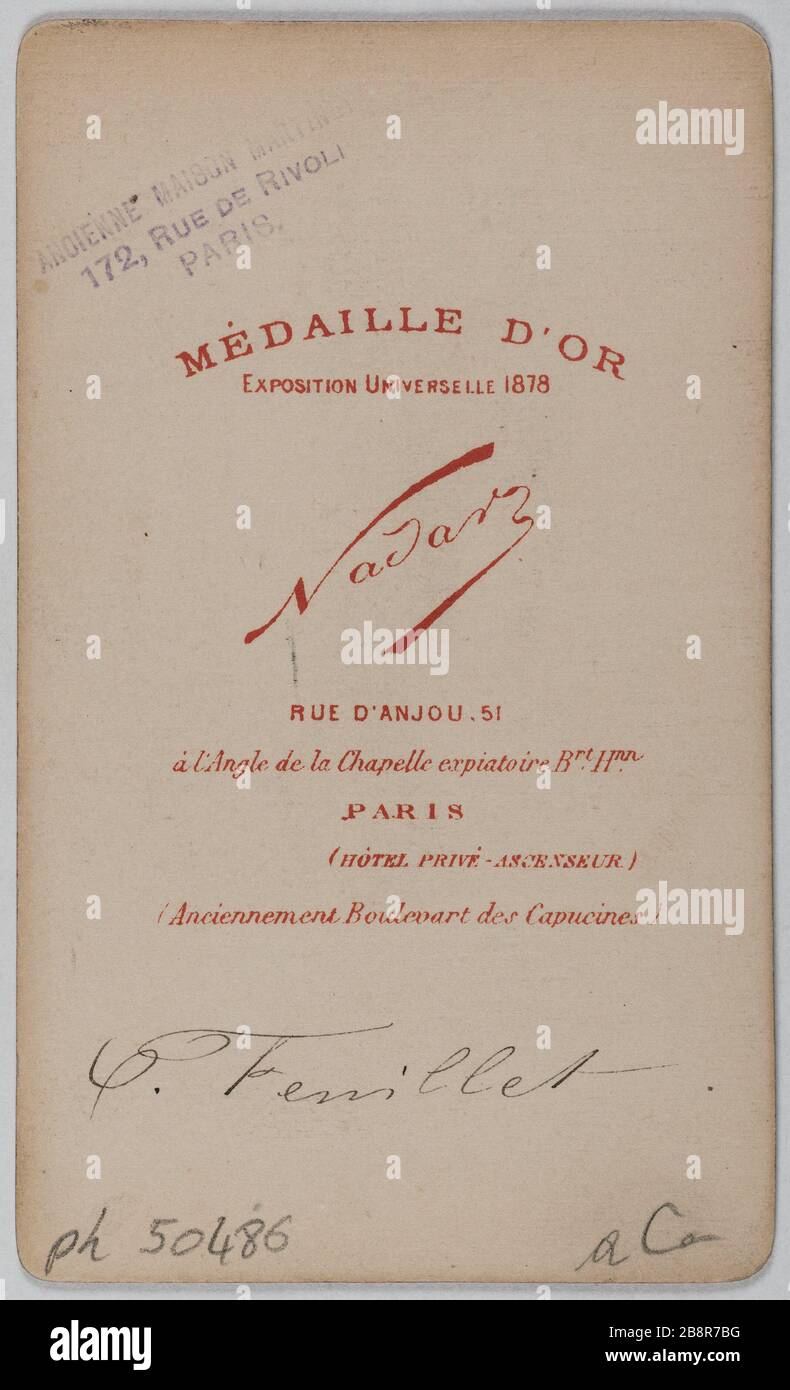 ANCIENNE MAISON
172, RUE DE RIVOLI
PARIS.
MÉDAILLE D'OR
EXPOSITION UNIVERSELLE 1878
Nadar
RUE D'ANJOU, 51
à l'Angle de la Chapelle expiatoire Brt. Hnn.
PARIS
(HÔTEL PRIVÉ-ASCENSEUR)
(Anciennement Boulevart des Capucines)
Feuillet.
ph 50486
alamy
alamy
alamy
alamy
Image ID: 2B8R7BG
www.alamy.com